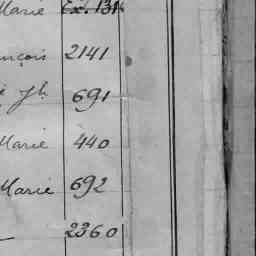 Marie Ex. 1314
nçois 2141
Jh 691
Marie 440
Marie 692
2360